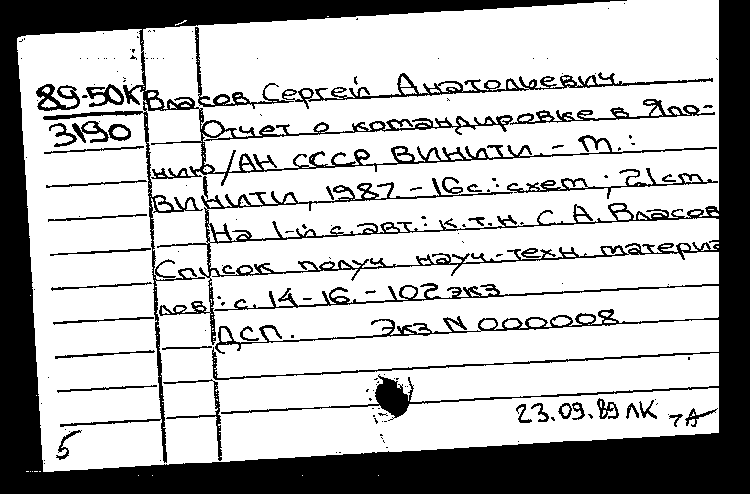 89-50К Власов, Сергей Анатольевич.
3190 Отчет о командировке в Япо-
нию/АН СССР, ВИНИТИ. - М.:
ВИНИТИ, 1987. - 16с.: схем; 21см.
На 1-й с. авт.: к.т.н. С.А. Власов
Список получ. науч.-техн. материа
лов: с. 14-16. - 102 экз
ДСП. Экз. N 000008
23.09.89 ЛК
5